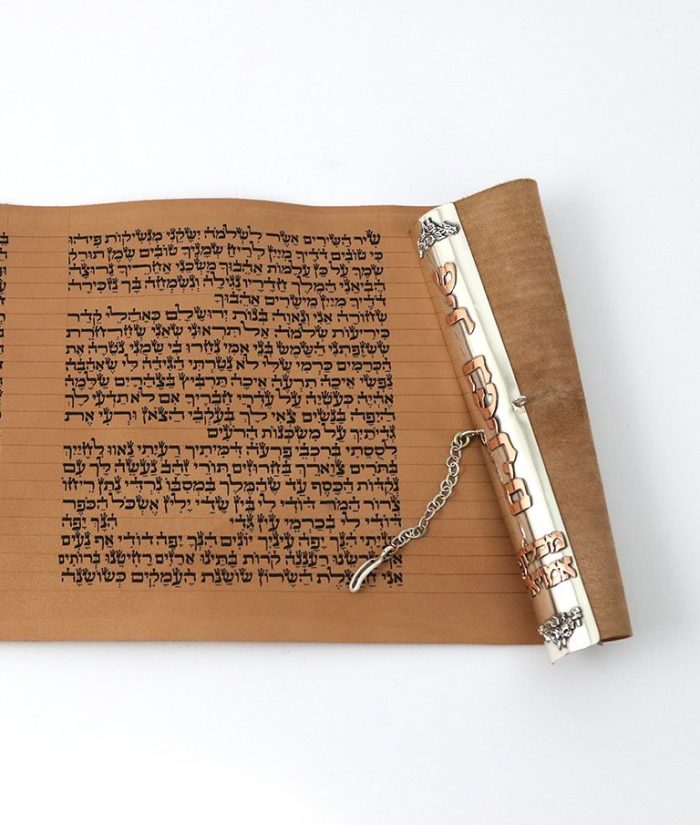 שיר השירים אשר לשלמה ישקני מנשיקות פיהו
כי טובים דדיך מיין לריח שמניך טובים שמן תורק
שמך על כן עלמות אהבוך משכני אחריך נרוצה
הביאני המלך חדריו נגילה ונשמחה בך נזכירה
דדיך מיין מישרים אהבוך
שחורה אני ונאוה בנות ירושלם כאהלי קדר
כיריעות שלמה אל תראוני שאני שחרחרת
ששזפתני השמש בני אמי נחרו בי שמני נטרה את
הכרמים כרמי שלי לא נטרתי הגידה לי שאהבה
נפשי איכה תרעה איכה תרביץ בצהרים שלמה
אהיה כעטיה על עדרי חבריך אם לא תדעי לך
היפה בנשים צאי לך בעקבי הצאן ורעי את
גדיתיך על משכנות הרעים
לססתי ברכבי פרעה דמיתיך רעיתי נאוו לחייך
בתרים צוארך בחרוזים תורי זהב נעשה לך עם
נקדות הכסף עד שהמלך במסבו נרדי נתן ריחו
צרור המר דודי לי בין שדי ילין אשכל הכפר
דודי לי בכרמי עין גדי הנך יפה
רעיתי הנך יפה עיניך יונים הנך יפה דודי אף נעים
אף ערשנו רעננה קרות בתינו ארזים רחיטנו ברותים
אני חבצלת השרון שושנת העמקים כשושנה
שיר השירים